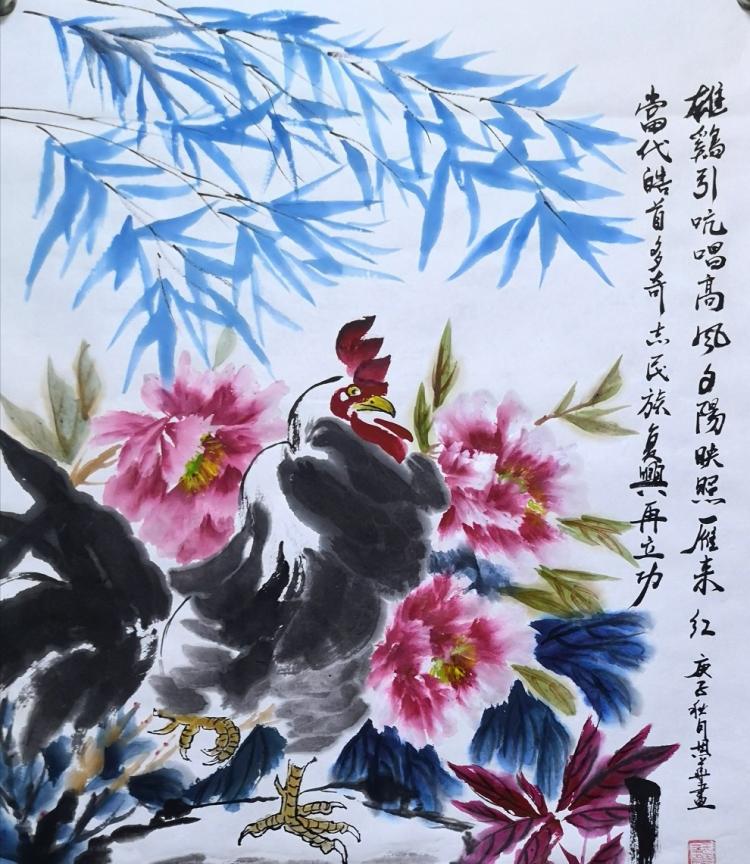 雄鷄引吭唱高风夕陽映照雁来红
當代皓首多奇志民族复興再立功
庚子秋月 画